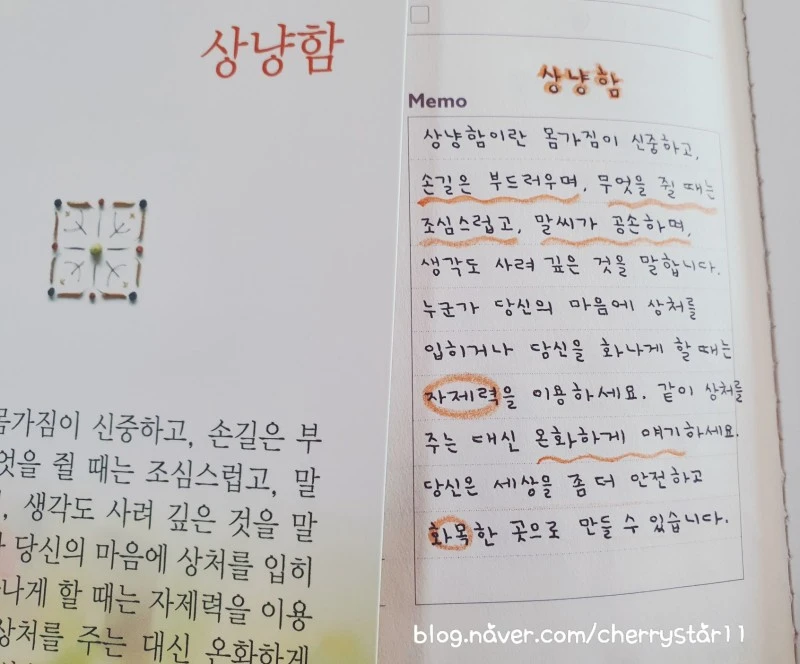 상냥함
몸가짐이 신중하고, 손길은 부
엇을 쥘 때는 조심스럽고, 말
, 생각도 사려 깊은 것을 말
당신의 마음에 상처를 입히
나게 할 때는 자제력을 이용
상처를 주는 대신 온화하게
상냥함
Memo
상냥함이란 몸가짐이 신중하고,
손길은 부드러우며, 무엇을 쥘 때는
조심스럽고, 말씨가 공손하며,
생각도 사려 깊은 것을 말합니다.
누군가 당신의 마음에 상처를
입히거나 당신을 화나게 할 때는
자제력을 이용하세요. 같이 상처를
주는 대신 온화하게 얘기하세요.
당신은 세상을 좀 더 안전하고
화목한 곳으로 만들 수 있습니다.
blog.naver.com/cherrystar11